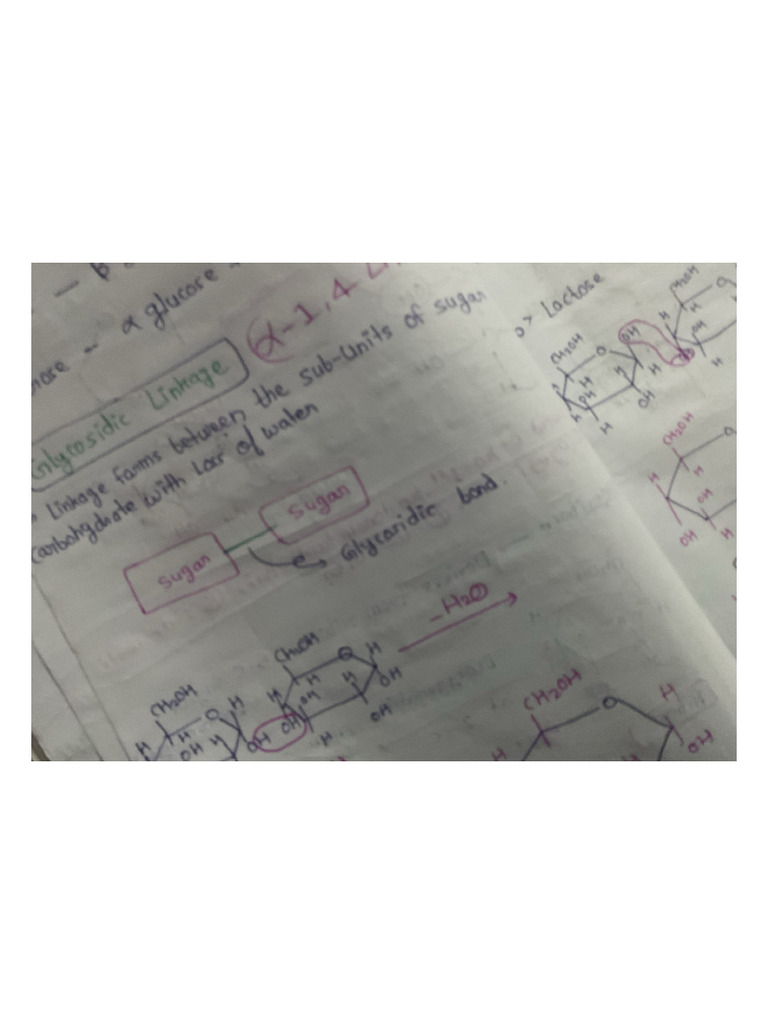 α glucose
α-1,4
Glycosidic Linkage
Linkage forms between the sub-units of sugar
carbohydrate with loss of water
Sugar
Sugar
Glycoridic bond.
-H2O
CH2OH
O
H
H
H
OH
H
OH
H
OH
CH2OH
O
H
H
H
OH
OH
OH
CH2OH
O
H
H
OH
Lactose
CH2OH
O
OH
H
H
H
OH
OH
H
CH2OH
O
H
H
OH
H
CH2OH
O
H
H
OH
OH